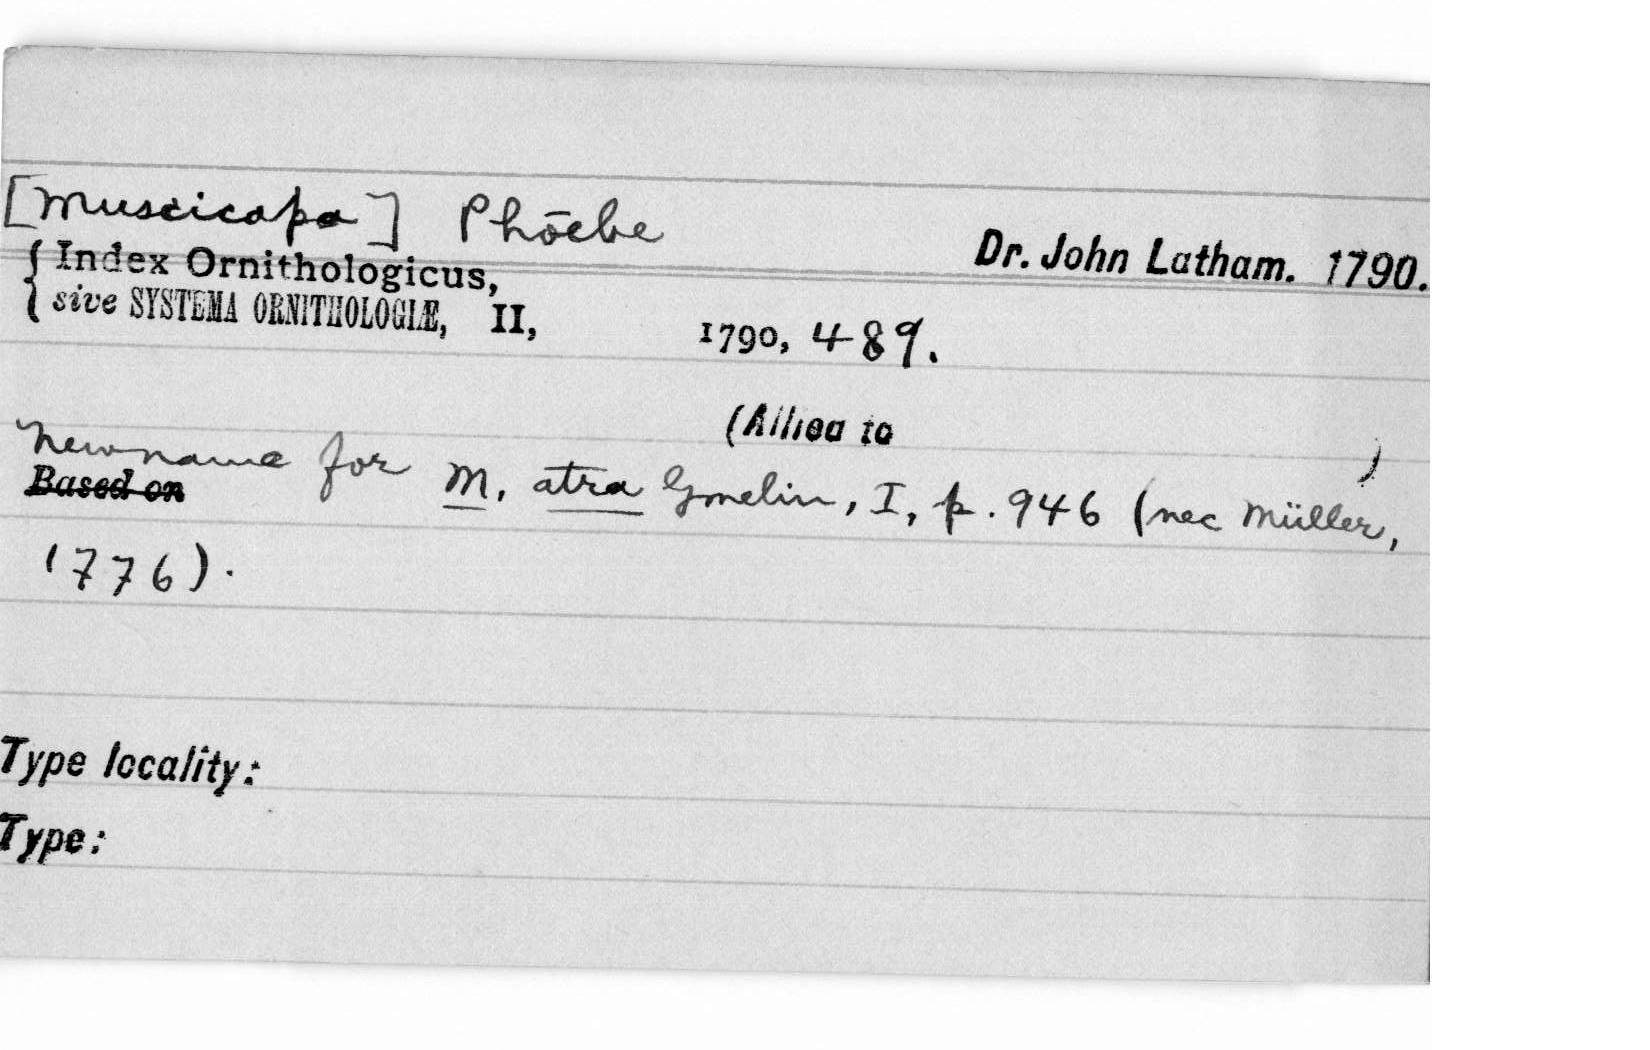 [Muscicapa] Phōebe
Dr. John Latham. 1790.
{ Index Ornithologicus,
sive SYSTEMA ORNITHOLOGIÆ, II, 1790, 489.
(Allied to )
New name for M. atra Gmelin, I, p. 946 (nec Müller,
Based on
1776).
Type locality:
Type: